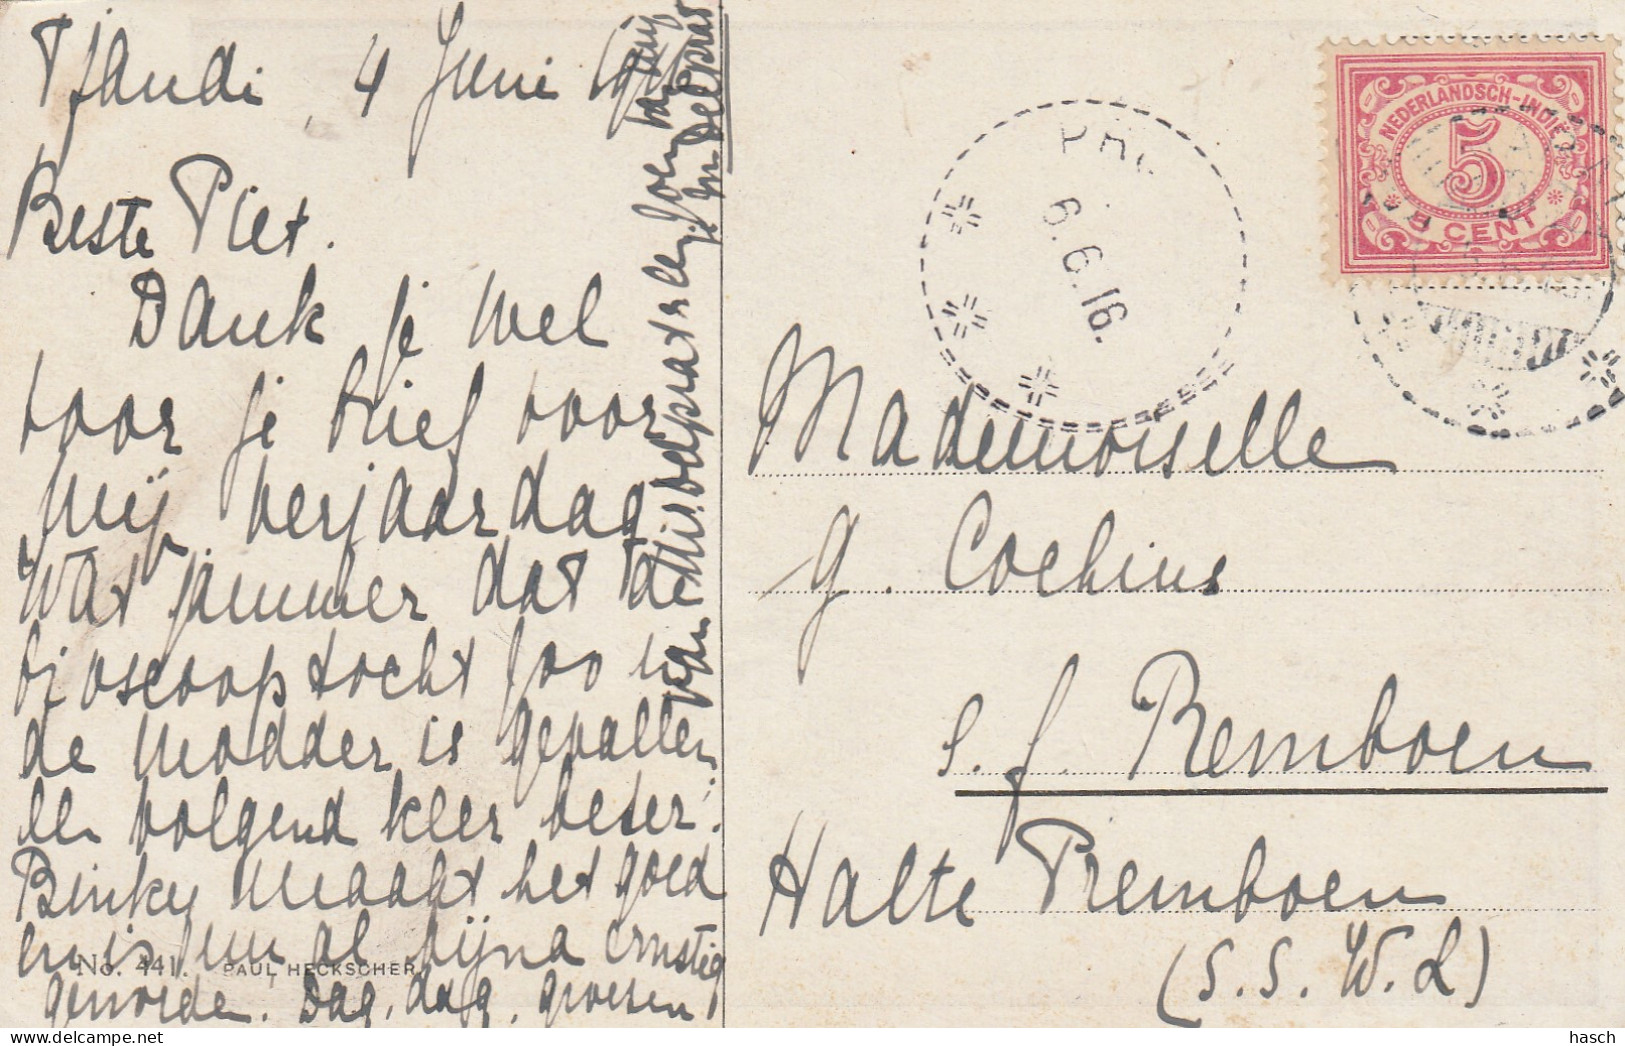 Tjandi, 4 Juni 1916
Beste Piet.
Dank je wel
voor je brief voor
mij verjaardag
Wat jammer dat de
bioscooptocht zoo in
de modder is gevallen
een volgend keer beter.
Binky maakt het goed
en is nu al bijna ernstig
geworde. Dag, dag, groesen
van
No. 441. PAUL HECKSCHER
NEDERLANDSCH-INDIE
5
CENT
6.6.16.
Mademoiselle
G. Cochius
s. f. Remboen
Halte Premboen
(S. S. W. L)
hasch